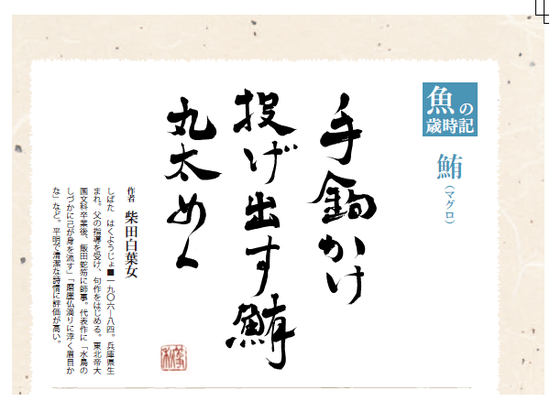 魚の
歳時記
鮪（マグロ）
手鉤かけ
投げ出す鮪
丸太めく
作者 柴田白葉女
しばた はくようじょ■一九〇六―八四。兵庫県生
まれ。父の指導を受け、句作をはじめる。東北帝大
国文科卒業後、飯田蛇笏に師事。代表作に「水鳥の
しづかに己が身を流す」「磨崖仏濁りに浮く眉目か
な」など。平明で清潔な詩情に評価が高い。